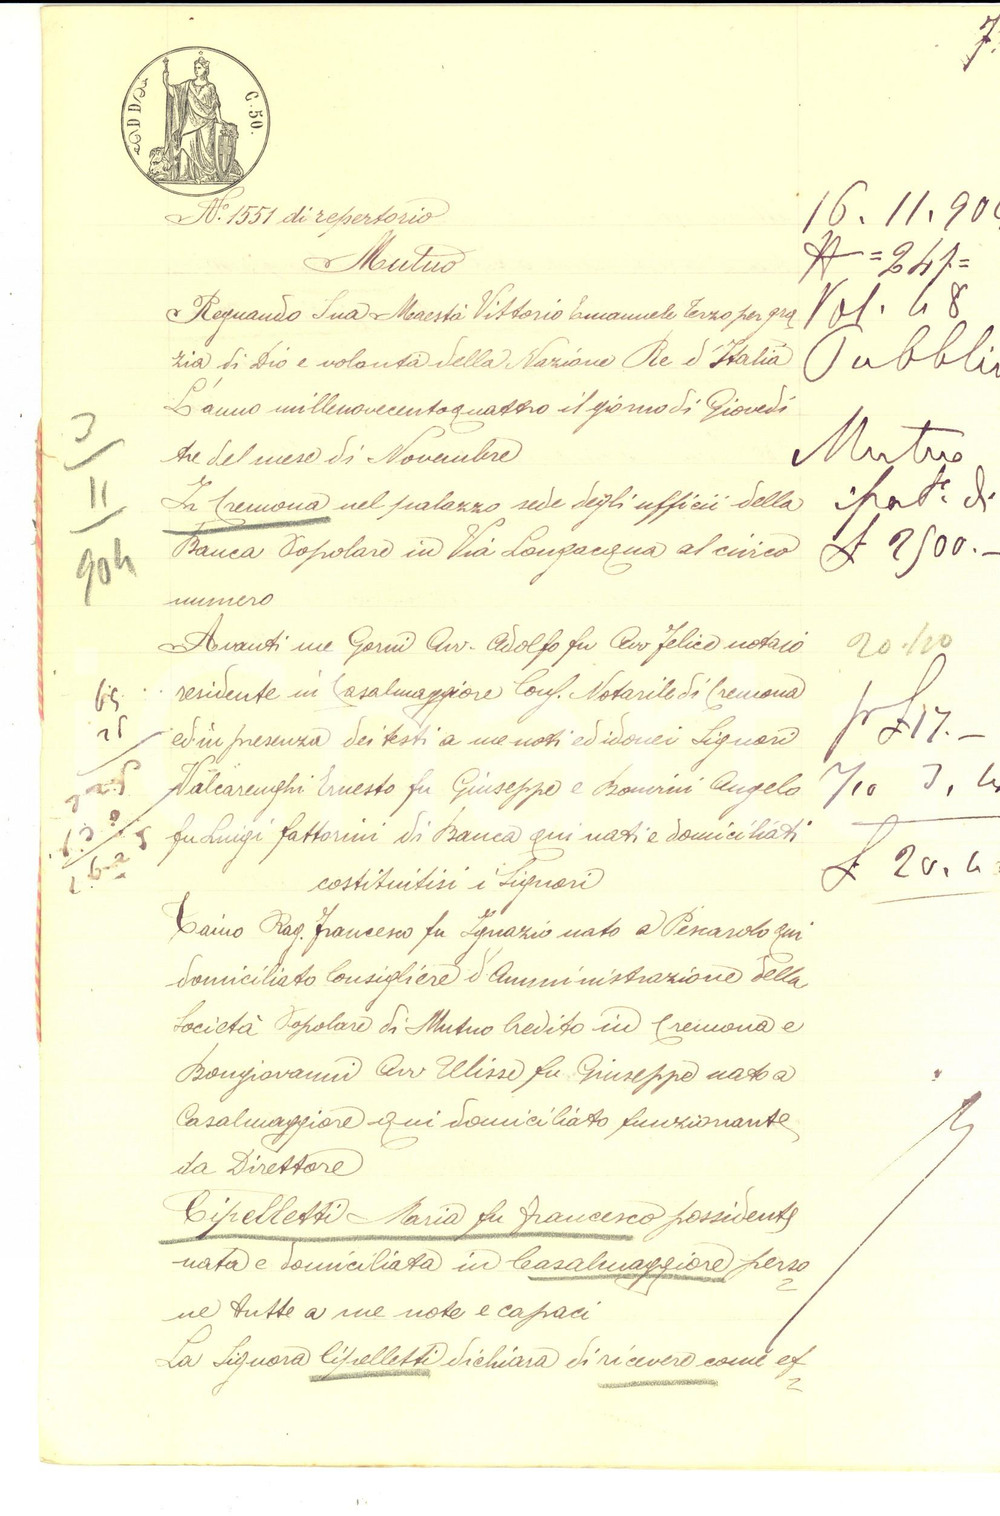 C. 50.
N.° 1551 di repertorio
Mutuo
Regnando Sua Maestà Vittorio Emanuele Terzo per gra
zia di Dio e volontà della Nazione Re d'Italia
L'anno millenovecentoquattro il giorno di Giovedì
tre del mese di Novembre
In Cremona nel palazzo sede degli ufficii della
Banca Popolare in Via Longacqua al civico
numero
Avanti me Gorni Avv. Adolfo fu Avv Felice notaio
residente in Casalmaggiore Cons. Notarile di Cremona
ed in presenza dei testi a me noti ed idonei Signori
Valcarenghi Ernesto fu Giuseppe e Bonvini Angelo
fu Luigi fattorini di Banca qui nati e domiciliati
costituitisi i Signori
Caino Rag. Francesco fu Ignazio nato a Pescarolo qui
domiciliato Consigliere d'Amministrazione della
Società Popolare di Mutuo Credito in Cremona e
Bongiovanni Avv Ulisse fu Giuseppe nato a
Casalmaggiore qui domiciliato funzionante
da Direttore
Cipelletti Maria fu Francesco possidente
nata e domiciliata in Casalmaggiore perso
ne tutte a me note e capaci
La Signora Cipelletti dichiara di ricevere come ef
3
11
904
16. 11. 904
N = 247 =
Vol. 48
Pubbli
Mutuo
ipot.e di
£ 2500. -
20.40
£ 17. -
7/10 3. 4
£ 20. 4